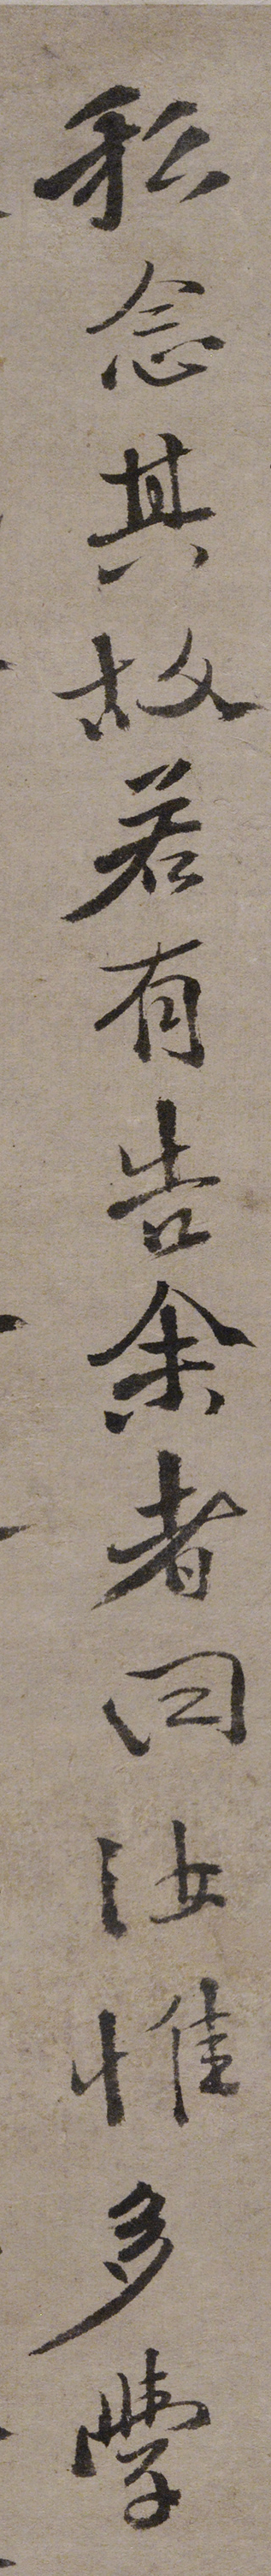 私念其故若有告余者曰汝惟多學